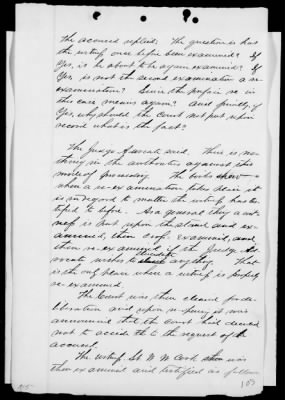 the accused replied: The question is has
the witness once before been examined? If
Yes, is he about to be again examined? If
Yes is not the second examination a re-
examination? Since the prefix re in
this case means again? And finally, if
Yes, why should the Court not put upon
record what is the fact?
The Judge Advocate said, There is no-
thing in the authorities against this
mode of proceeding. The books show
when a re-examination takes place it
is in regard to matter the witness has tes-
tified to before. In general they a wit-
ness is put upon the stand and ex-
amined, then cross examined, and
then re-examined if the Judge Ad-
vocate wishes to anything. That
is the only place when a witness is properly
re-examined.
The Court was then cleared for de-
liberation and upon re-opening it was
announced that the Court had decided
not to accede to the request of the
accused.
The witness Lt W. W. Cook was
then examined and testified as follows
103